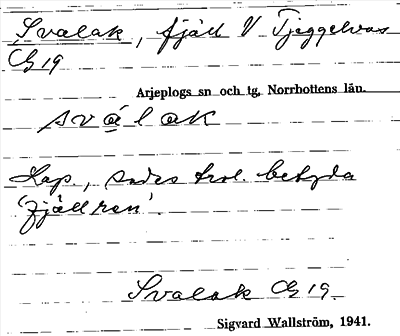 Svalak, fjäll V Tjeggelvas
Cg 19
Arjeplogs sn och tg, Norrbottens län.
sválak
Lap., sades trol. betyda
'fjällren'.
Svalak Cg 19.
Sigvard Wallström, 1941.